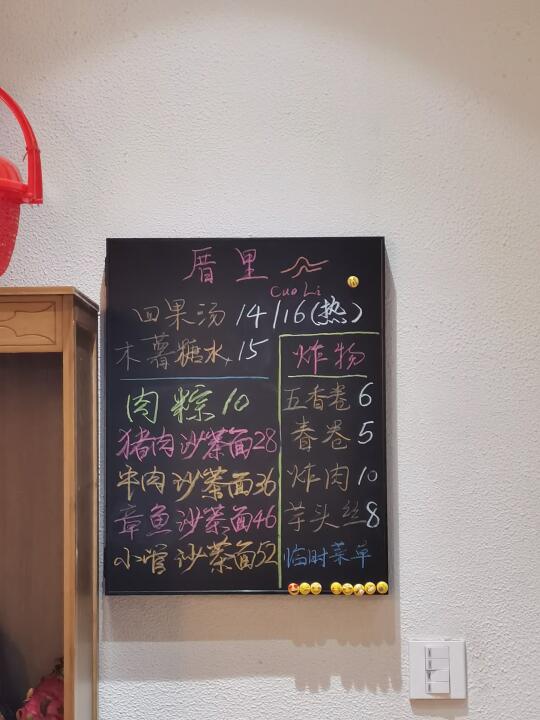 厝里
Cuo Li
四果汤 14/16(热)
木薯糖水 15
肉粽 10
猪肉沙茶面28
牛肉沙茶面36
章鱼沙茶面46
小管沙茶面52
炸物
五香卷 6
春卷 5
炸肉 10
芋头丝 8
临时菜单